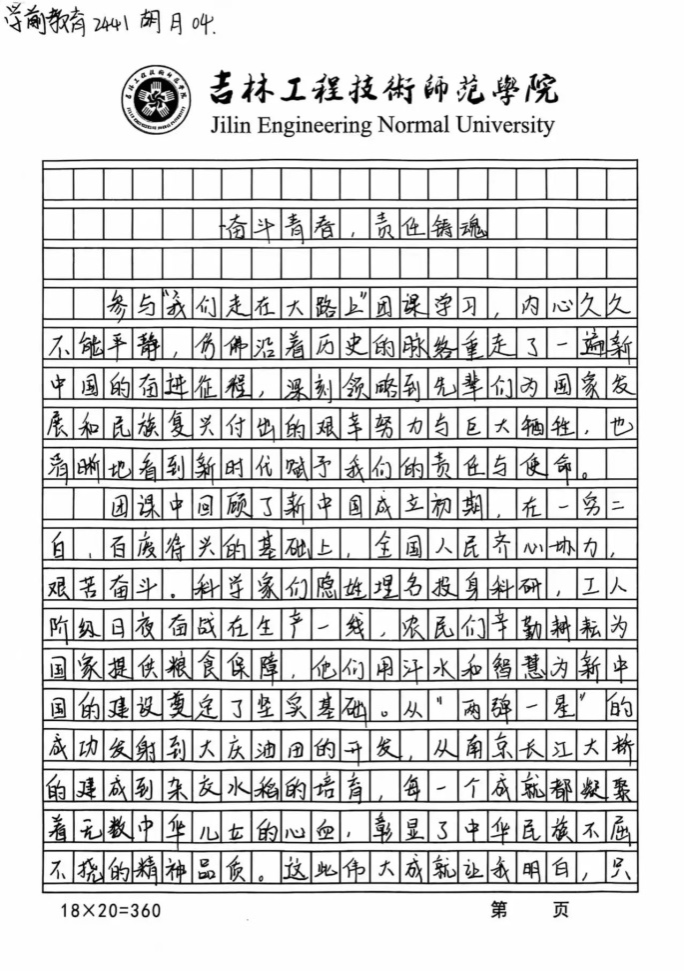 学前教育2441 胡月 04.
吉林工程技術師范學院
Jilin Engineering Normal University
奋斗青春，责任铸魂
参与"我们走在大路上"团课学习，内心久久
不能平静，仿佛沿着历史的脉络重走了一遍新
中国的奋进征程，深刻领略到先辈们为国家发
展和民族复兴付出的艰辛努力与巨大牺牲，也
清晰地看到新时代赋予我们的责任与使命。
团课中回顾了新中国成立初期，在一穷二
白，百废待兴的基础上，全国人民齐心协力，
艰苦奋斗。科学家们隐姓埋名投身科研，工人
阶级日夜奋战在生产一线，农民们辛勤耕耘为
国家提供粮食保障，他们用汗水和智慧为新中
国的建设奠定了坚实基础。从"两弹一星"的
成功发射到大庆油田的开发，从南京长江大桥
的建成到杂交水稻的培育，每一个成就都凝聚
着无数中华儿女的心血，彰显了中华民族不屈
不挠的精神品质。这些伟大成就让我明白，只
18×20=360
第 页